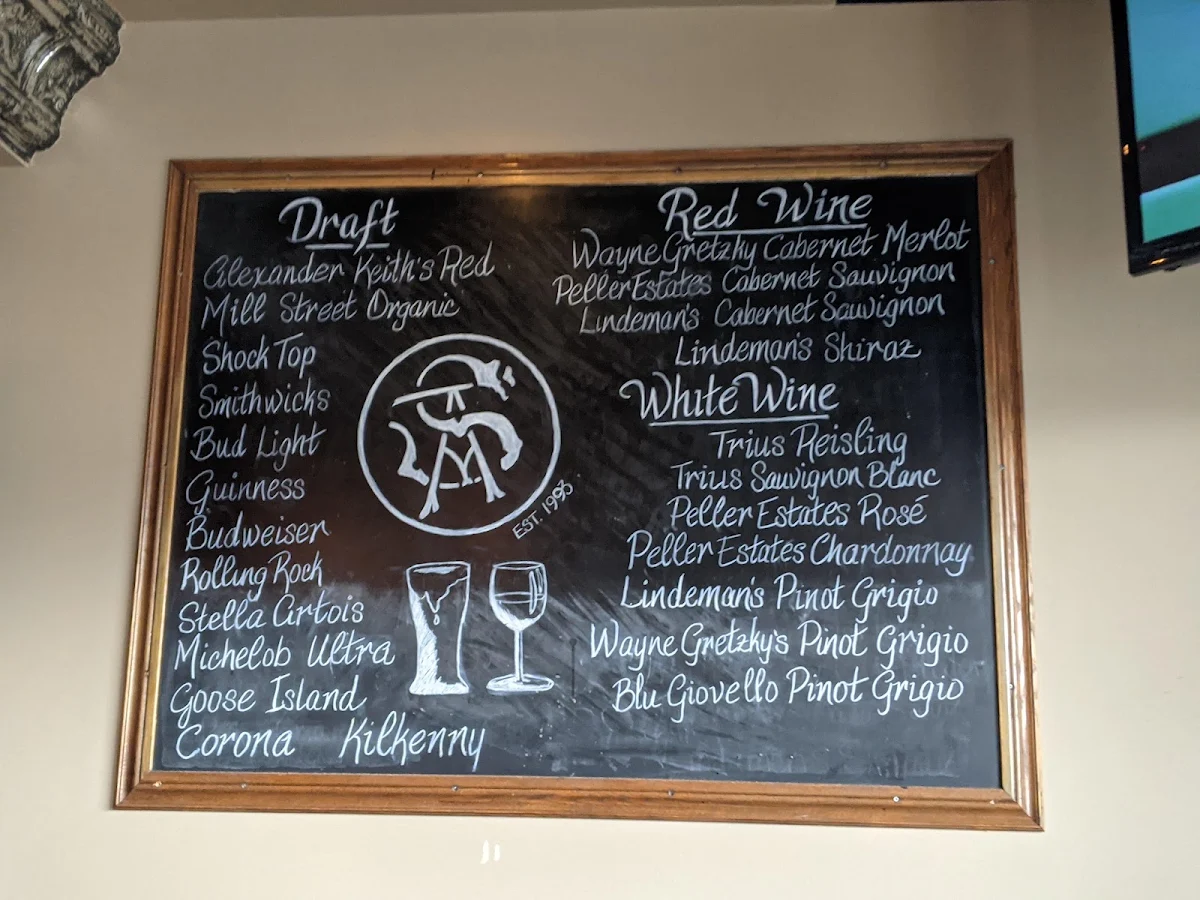 Draft
Alexander Keith's Red
Mill Street Organic
Shock Top
Smithwicks
Bud Light
Guinness
Budweiser
Rolling Rock
Stella Artois
Michelob Ultra
Goose Island
Corona Kilkenny
EST. 1998
Red Wine
Wayne Gretzky Cabernet Merlot
Peller Estates Cabernet Sauvignon
Lindeman's Cabernet Sauvignon
Lindeman's Shiraz
White Wine
Trius Reisling
Trius Sauvignon Blanc
Peller Estates Rosé
Peller Estates Chardonnay
Lindeman's Pinot Grigio
Wayne Gretzky's Pinot Grigio
Blu Giovello Pinot Grigio